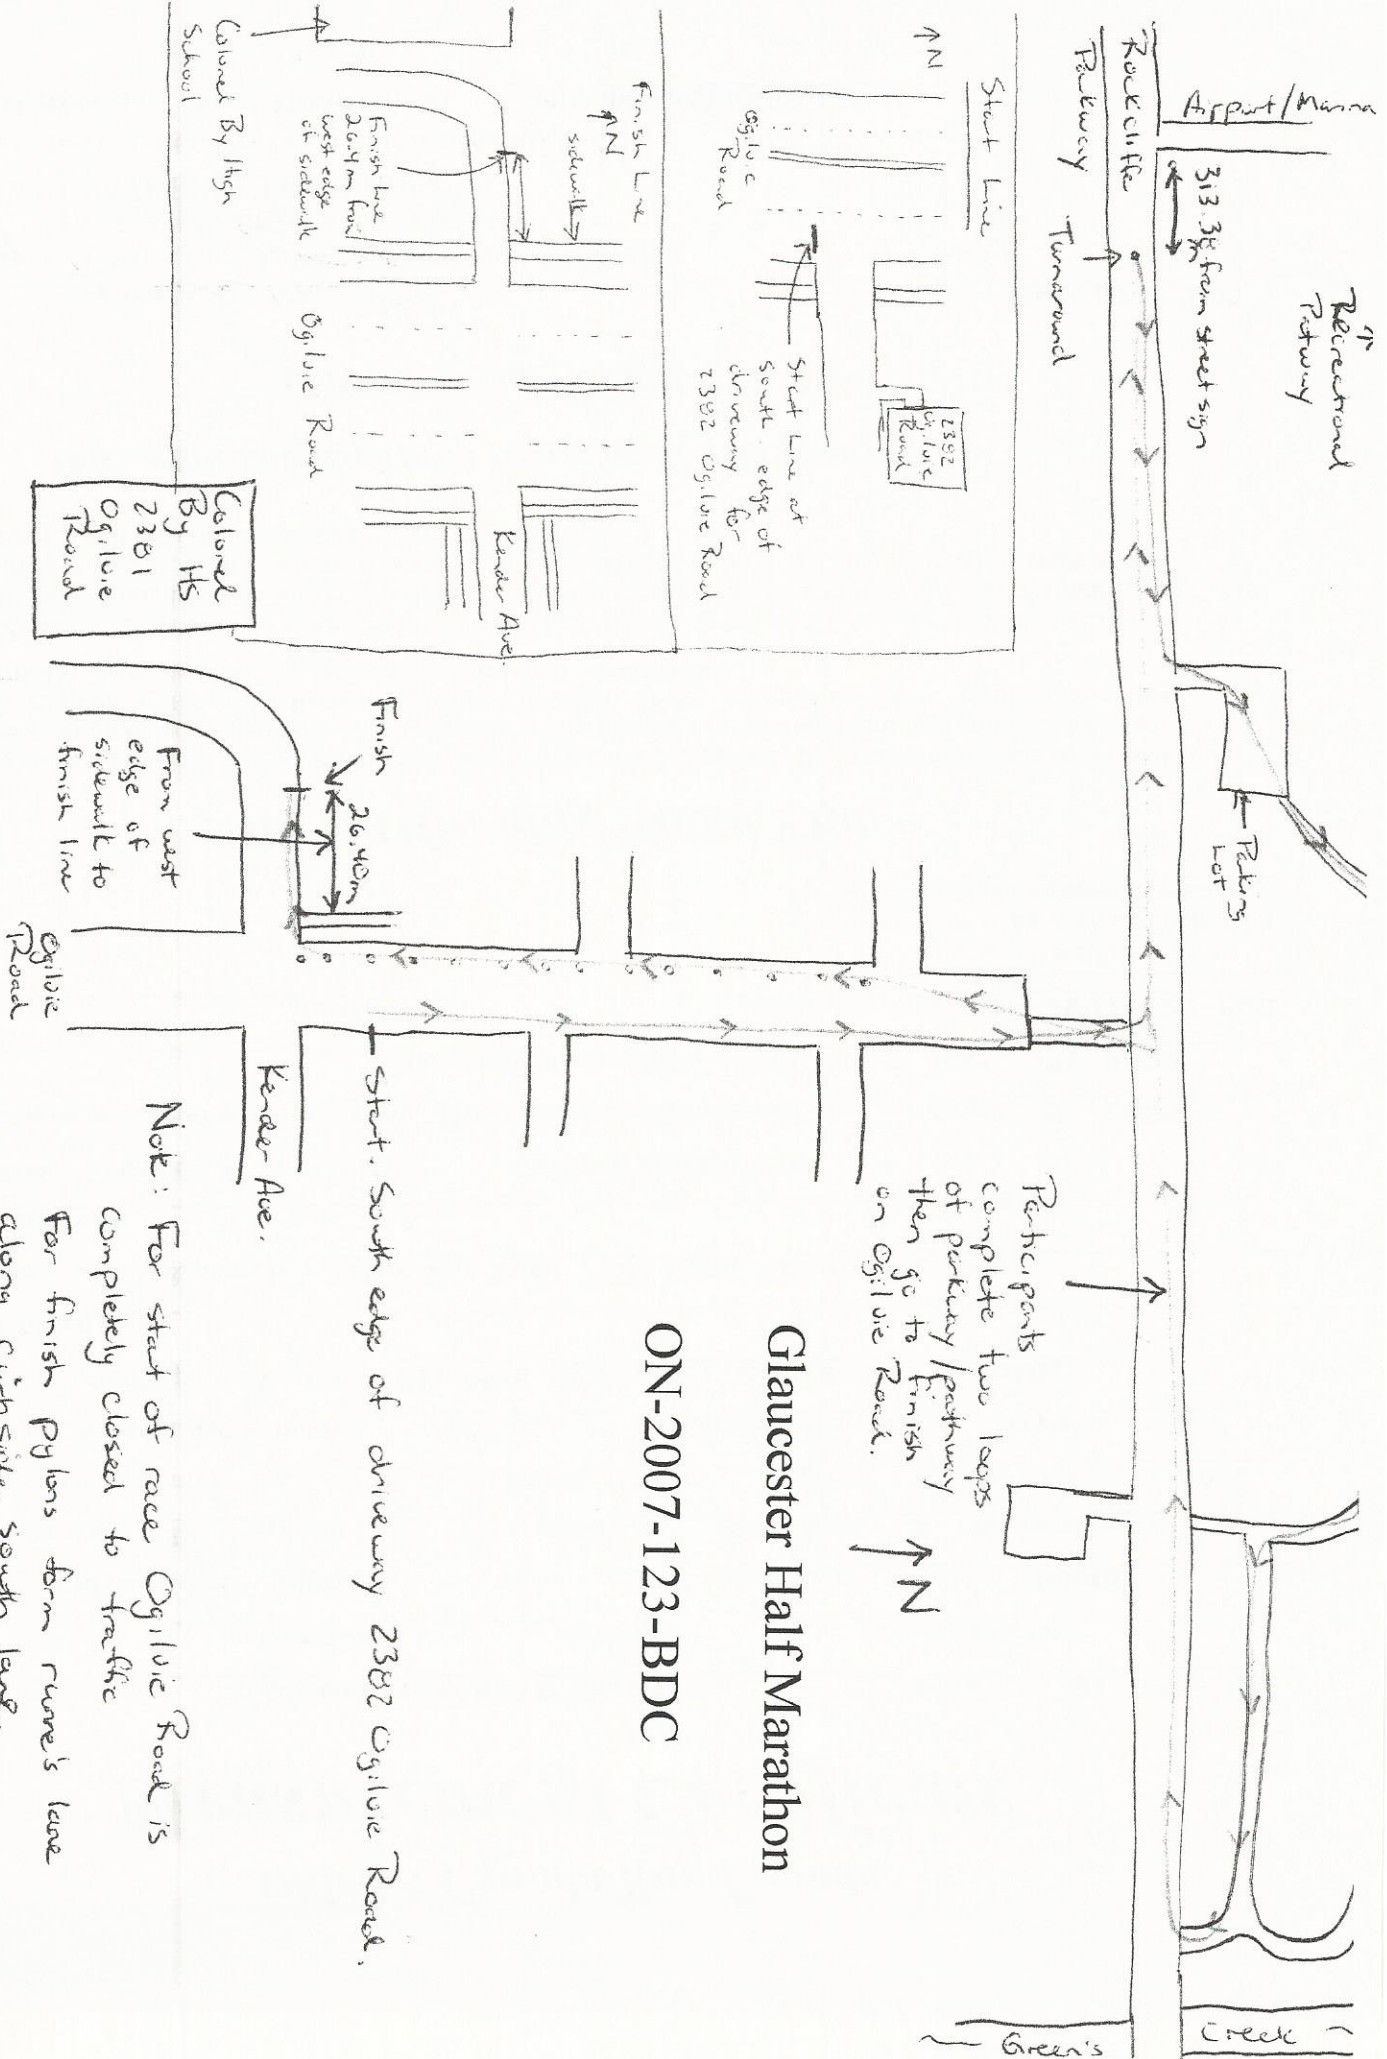 Airport/Marina
Rockcliffe
Parkway
313.38m from street sign
Turnaround
Recreational
Patway
Parking
Lot
Start Line
N
Ogilvie
Road
2382
Ogilvie
Road
Start Line at
south edge of
driveway for
2382 Ogilvie Road
Finish Line
N
sidewalk
Finish Line
26.4m from
west edge
of sidewalk
Ogilvie Road
Kender Ave.
Colonel By High
School
Colonel
By HS
2381
Ogilvie
Road
Finish
26.40m
From west
edge of
sidewalk to
finish line
Ogilvie
Road
Kender Ave.
Start. South edge of driveway 2382 Ogilvie Road.
Participants
complete two loops
of parkway/pathway
then go to finish
on Ogilvie Road.
N
Glaucester Half Marathon
ON-2007-123-BDC
Note: For start of race Ogilvie Road is
completely closed to traffic
For finish pylons form runne's lane
along curbside south lane.
Green's
Creek